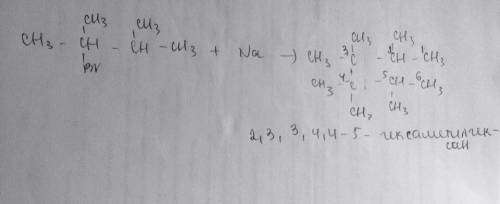 CH3 CH3
CH3 - CH - CH - CH3 + Na → CH3 3C - 2CH - 1CH3
Br
CH3 CH3
CH3 4C - 5CH - 6CH3
CH3 CH3
2,3,3,4,4-5-гексаметилгек-
сан